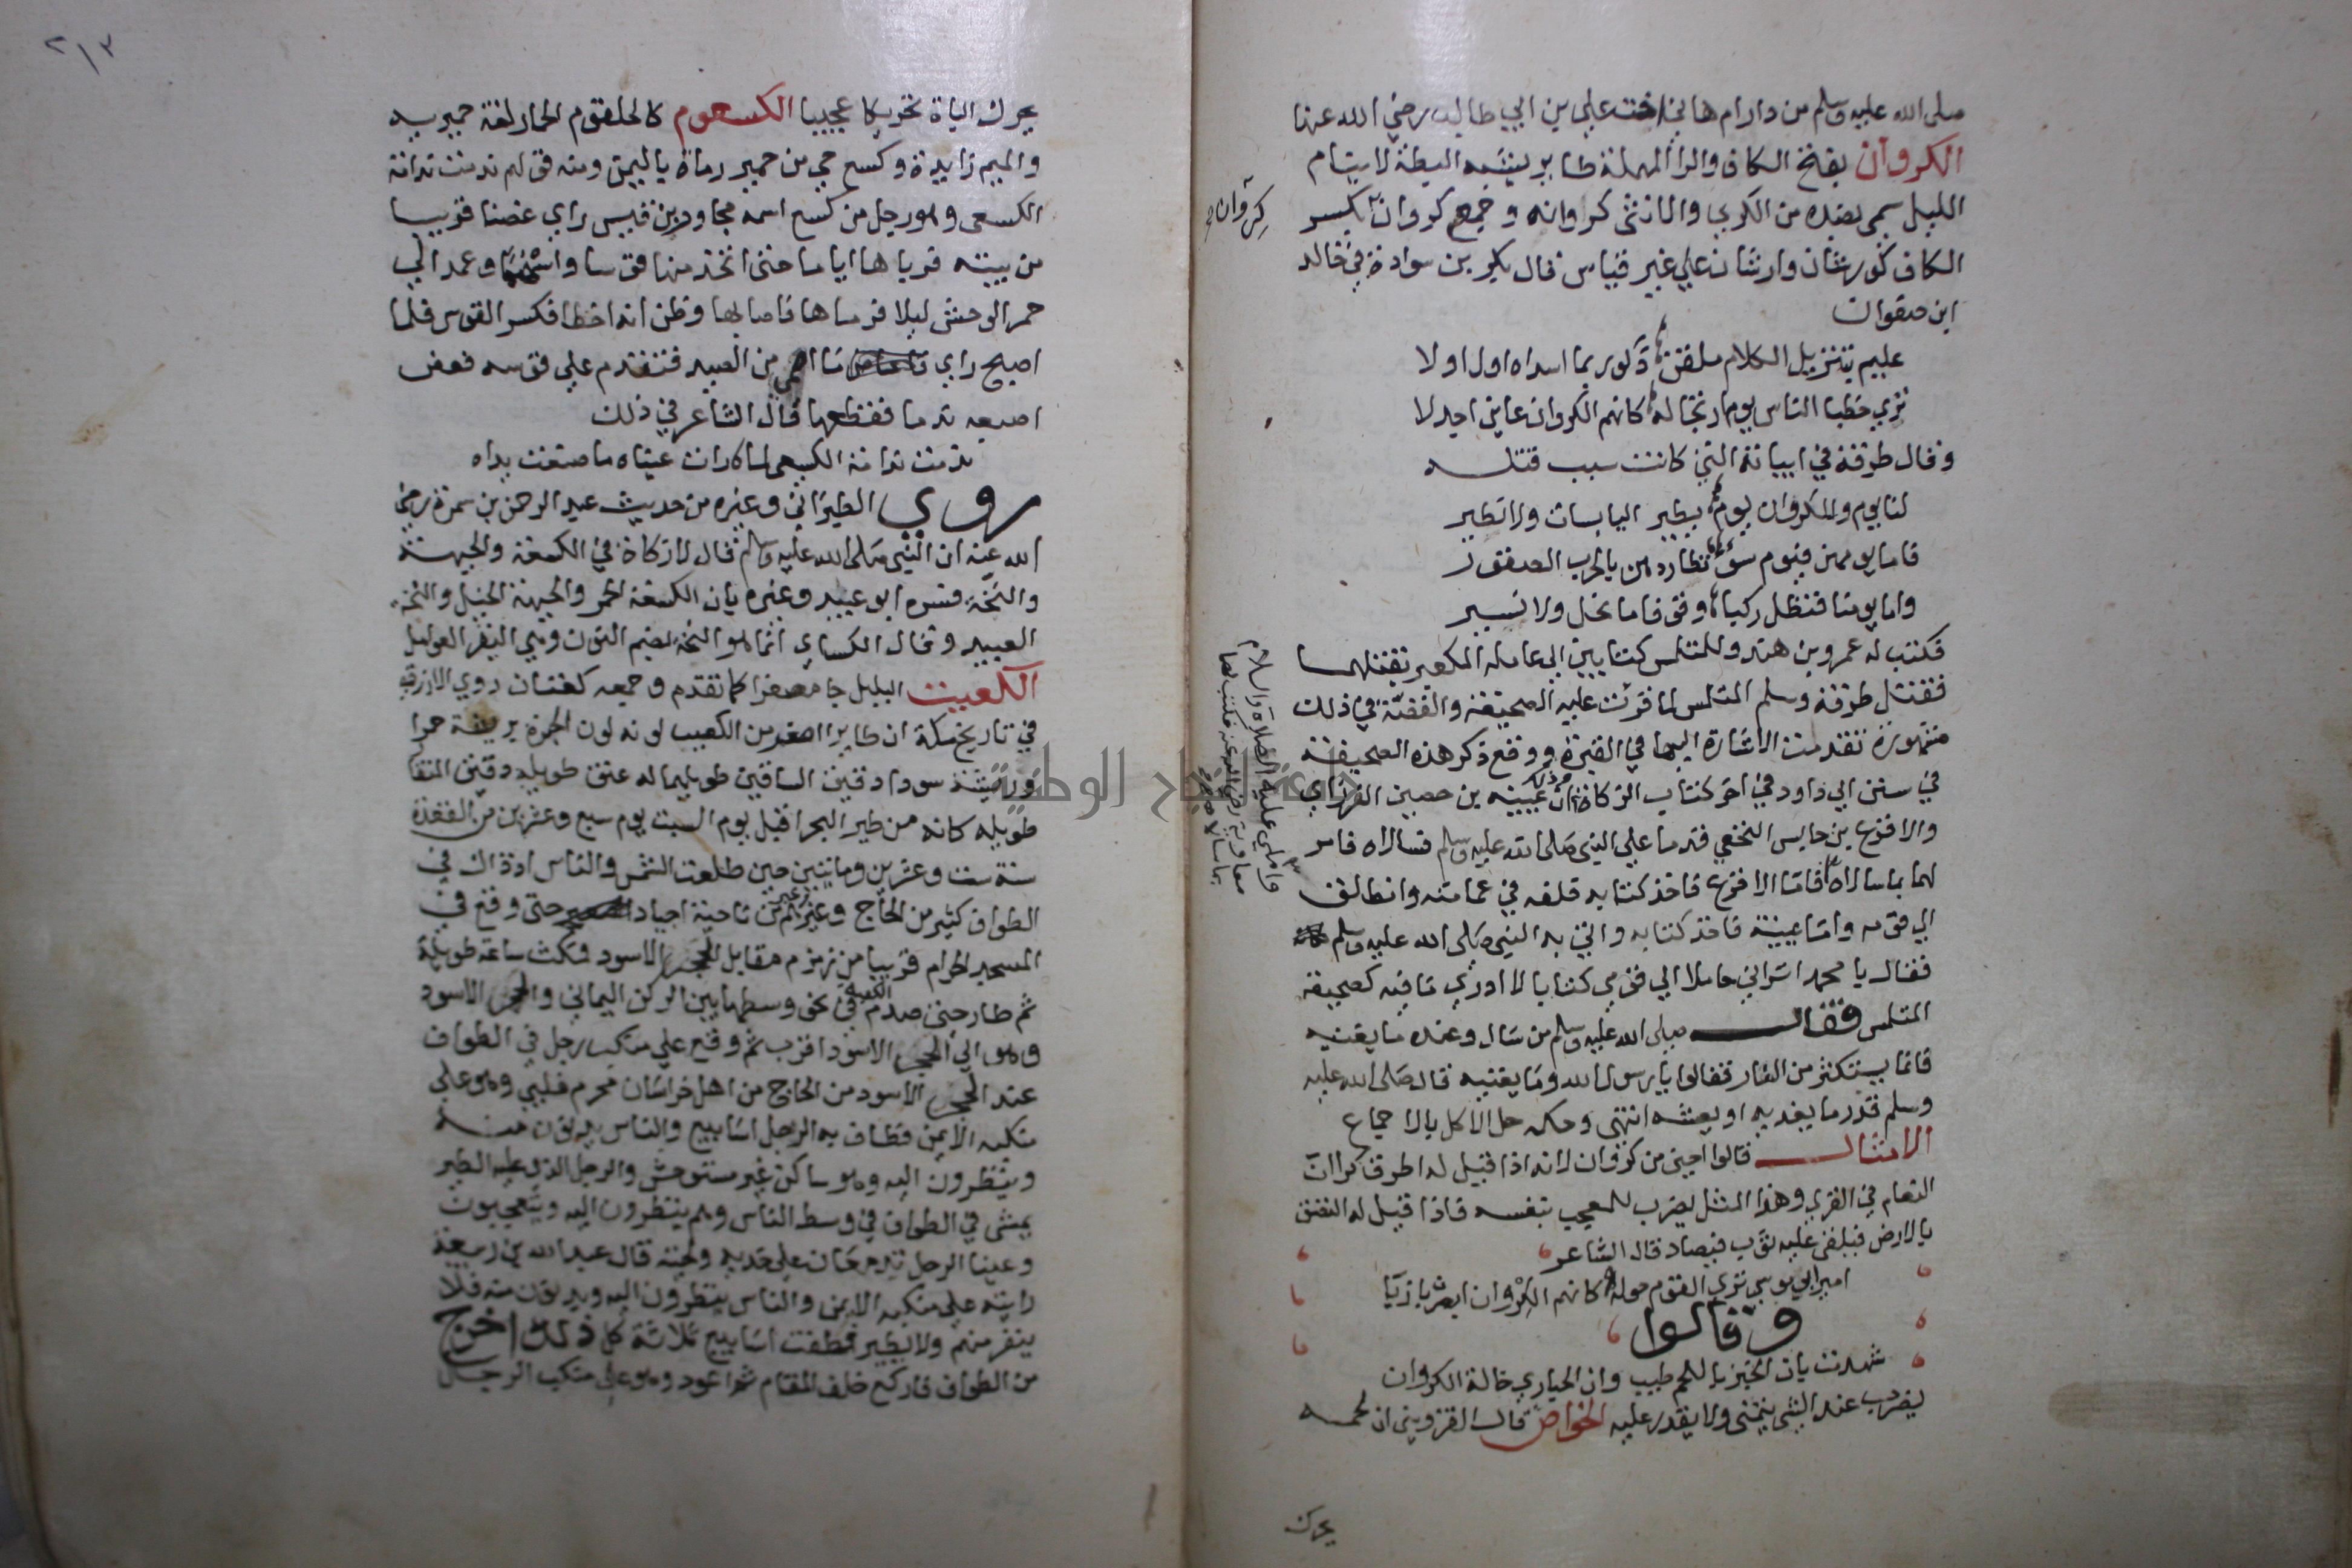 صلى الله عليه وسلم من دار ام هاني اخت علي بن ابي طالب رضي الله عنها
الكروان بفتح الكاف والرا المهملة طاير يشبه البطة لا ينام
الليل سمي بضده من الكري والانثى كروانه وجمع كروان بكسر
كروان
الكاف كورشان وارشان علي غير قياس قال بكر بن سوادة في خالد
ابن صفوان
عليم بتنزيل الكلام ملقن ذكور بما اسداه اول اولا
تري خطبا الناس يوم ارتجاله كانهم الكروان عاين اجدلا
وقال طرفة في ابياته التي كانت سبب قتله
لنا يوم وللكروان يوم تطير اليابسات ولا تطير
فاما يومهن فيوم سوء تطاردهن بالحرب الصقور
واما يومنا فنظل ركبا وقوفا ما نحل ولا نسير
فكتب له عمرو بن هند وللمتلمس كتابين الي عامله المكعبر بقتلهما
فقتل طرفة وسلم المتلمس لما قرئت عليه الصحيفة والقصة في ذلك
مشهورة تقدمت الاشارة اليها في القبرة ووقع ذكر هذه الصحيفة
في سنن ابي داود في اخر كتاب الزكاة ان عيينه بن حصين الفزاري
والاقرع بن حابس النخعي قدما علي النبي صلى الله عليه وسلم فسالاه فامر
لهما بما سالاه فاما الاقرع فاخذ كتابه فلفه في عمامته وانطلق
الي قومه واما عيينة فاخذ كتابه واتي به النبي صلى الله عليه وسلم
فقال يا محمد اتراني حاملا الي قومي كتابا لا ادري ما فيه كصحيفة
المتلمس فقال صلى الله عليه وسلم من سال وعنده ما يغنيه
فانما يستكثر من النار فقالوا يا رسول الله وما يغنيه قال صلى الله عليه
وسلم قدر ما يغديه او يعشه انتهى وحكمه حل الاكل بالاجماع
الامثال قالوا اجبن من كروان لانه اذا قيل له اطرق كرا ان
النعام في القري وهذا المثل يضرب للمعجب بنفسه فاذا قيل له التصق
بالارض فيلقي عليه ثوب فيصاد قال الشاعر
امير ابي موسي تري القوم حوله كانهم الكروان ابصرن بازيا
وقالوا
شهدت بان الخبز باللحم طيب وان الحباري خالة الكروان
يضرب عند الشي يتمنى ولا يقدر عليه الخواص قال القزويني ان لحمه
يحرك
واملي عليه الصلاة والسلام
معاوية رضي الله عنه فكتب لهما
بما سالا
٢١٣
يحرك الباة تحريكا عجيبا الكسعوم كالحلقوم الحمار لغة حميريه
والميم زايدة وكسع حي من حمير رماة باليمن ومنه قولهم ندمت ندامة
الكسعي وهو رجل من كسع اسمه محاود بن قيس راي غصنا قريبا
من بيته فرباها اياما حتى اتخذ منها قوسا واسهما وعمد الي
حمر الوحش ليلا فرماها فاصابها وظن انه اخطا فكسر القوس فلما
اصبح راي ما اصمي من الصيد فتندم علي قوسه فعض
اصبعه ندما فقطعها قال الشاعر في ذلك
ندمت ندامة الكسعي لما رات عيناه ما صنعت يداه
روي الطبراني وغيره من حديث عبد الرحمن بن سمرة رضي
الله عنه ان النبي صلى الله عليه وسلم قال لا زكاة في الكسعة والجبهة
والنخة فسره ابو عبيد وغيره بان الكسعة الحمر والجبهة الخيل والنخة
العبيد وقال الكساي انما هو النخة بضم النون وهي البقر العوامل
الكعيت البلبل جا مصغرا كما تقدم وجمعه كعتان روي الازرقي
في تاريخ مكة ان طايرا اصغر من الكعيب لونه لون الحبرة بريشة حمرا
وريشة سودا دقيق الساقين طويلهما له عنق طويله دقيق المنقا
طويله كانه من طير البحر اقبل يوم السبت يوم سبع وعشرين من القعدة
سنة ست وعشرين وماتين حين طلعت الشمس والناس اذ ذاك في
الطواف كثير من الحاج وغيرهم من ناحية اجياد حتى وقع في
المسجد الحرام قريبا من زمزم مقابل الحجر الاسود فمكث ساعة طويلة
ثم طار حتى صدم الكعبة في نحو وسطها بين الركن اليماني والحجر الاسود
وهو الي الحجر الاسود اقرب ثم وقع علي منكب رجل في الطواف
عند الحجر الاسود من الحاج من اهل خراسان محرم فلبي وهو علي
منكبه الايمن فطاف به الرجل اسابيع والناس يدنون منه
وينظرون اليه وهو ساكن غير مستوحش والرجل الذي عليه الطير
يمشي في الطواف في وسط الناس وهم ينظرون اليه ويتعجبون
وعينا الرجل تدمعان علي خديه ولحيته قال عبد الله بن ربيعة
رايته علي منكبه الايمن والناس ينظرون اليه ويدنون منه فلا
ينفر منهم ولا يطير فطفت اسابيع ثلاثة كل ذلك اخرج
من الطواف فاركع خلف المقام ثم اعود وهو علي منكب الرجل
جامعة النجاح الوطنية